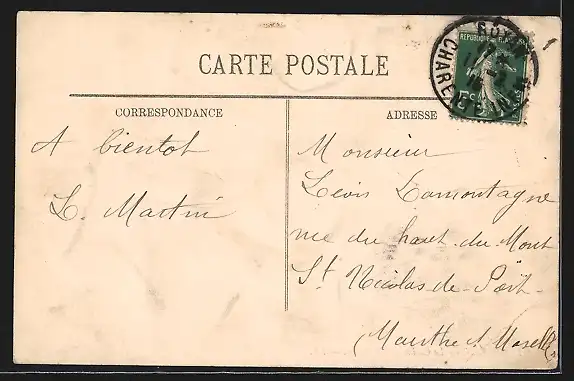 CARTE POSTALE
CORRESPONDANCE
ADRESSE
A bientot
L. Martin
Monsieur
Léon Lamontagne
rue du haut du Mont
St Nicolas-de-Port
Meurthe et Moselle
REPUBLIQUE FRANCAISE
ROYAN
CHARENTE INFRE